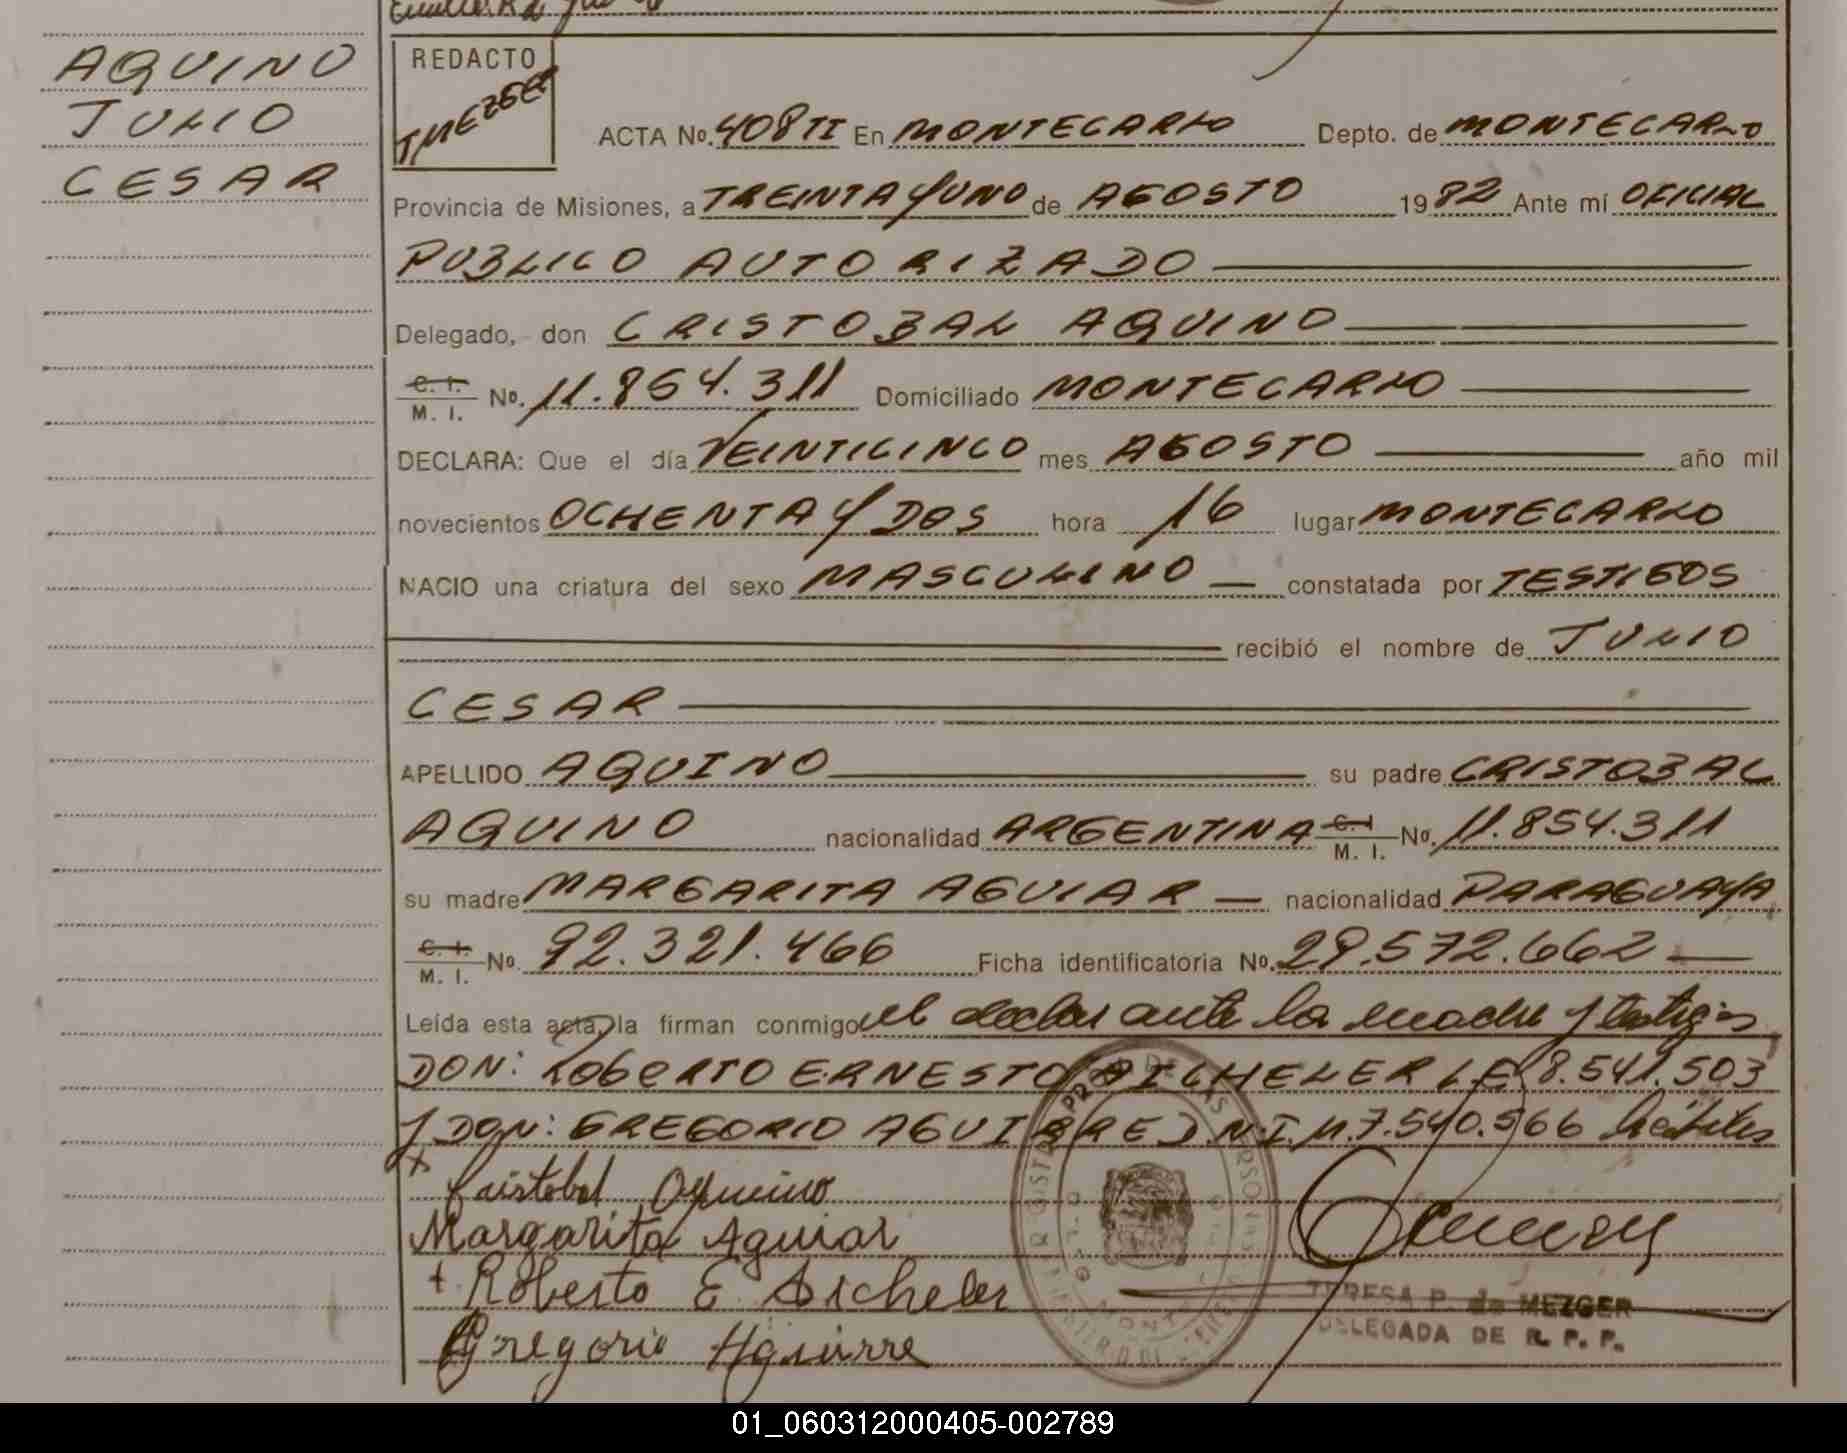 AQUINO
JULIO
CESAR
REDACTO
TMEZGER
ACTA No. 408 TI En MONTECARLO Depto. de MONTECARLO
Provincia de Misiones, a TREINTA Y UNO de AGOSTO 1982 Ante mí OFICIAL
PUBLICO AUTORIZADO
Delegado, don CRISTOBAL AQUINO
C. I. / M. I. No. 11.854.311 Domiciliado MONTECARLO
DECLARA: Que el día VEINTICINCO mes AGOSTO año mil
novecientos OCHENTA Y DOS hora 16 lugar MONTECARLO
NACIO una criatura del sexo MASCULINO constatada por TESTIGOS
recibió el nombre de JULIO
CESAR
APELLIDO AQUINO su padre CRISTOBAL
AQUINO nacionalidad ARGENTINA C. I / M. I. No. 11.854.311
su madre MARGARITA AGUIAR nacionalidad PARAGUAYA
C. I. / M. I. No. 92.321.466 Ficha identificatoria No. 29.572.662
Leída esta acta, la firman conmigo el declarante la madre y testigos
DON: ROBERTO ERNESTO LE 8.541.503
Y DON: GREGORIO AGUIRRE D.N.I.M. 7.540.566 hábiles
Cristobal Aquino
Margarita Aguiar
Roberto E
Gregorio Aguirre
TERESA P. de MEZGER
DELEGADA DE R. P. P.
01_060312000405-002789